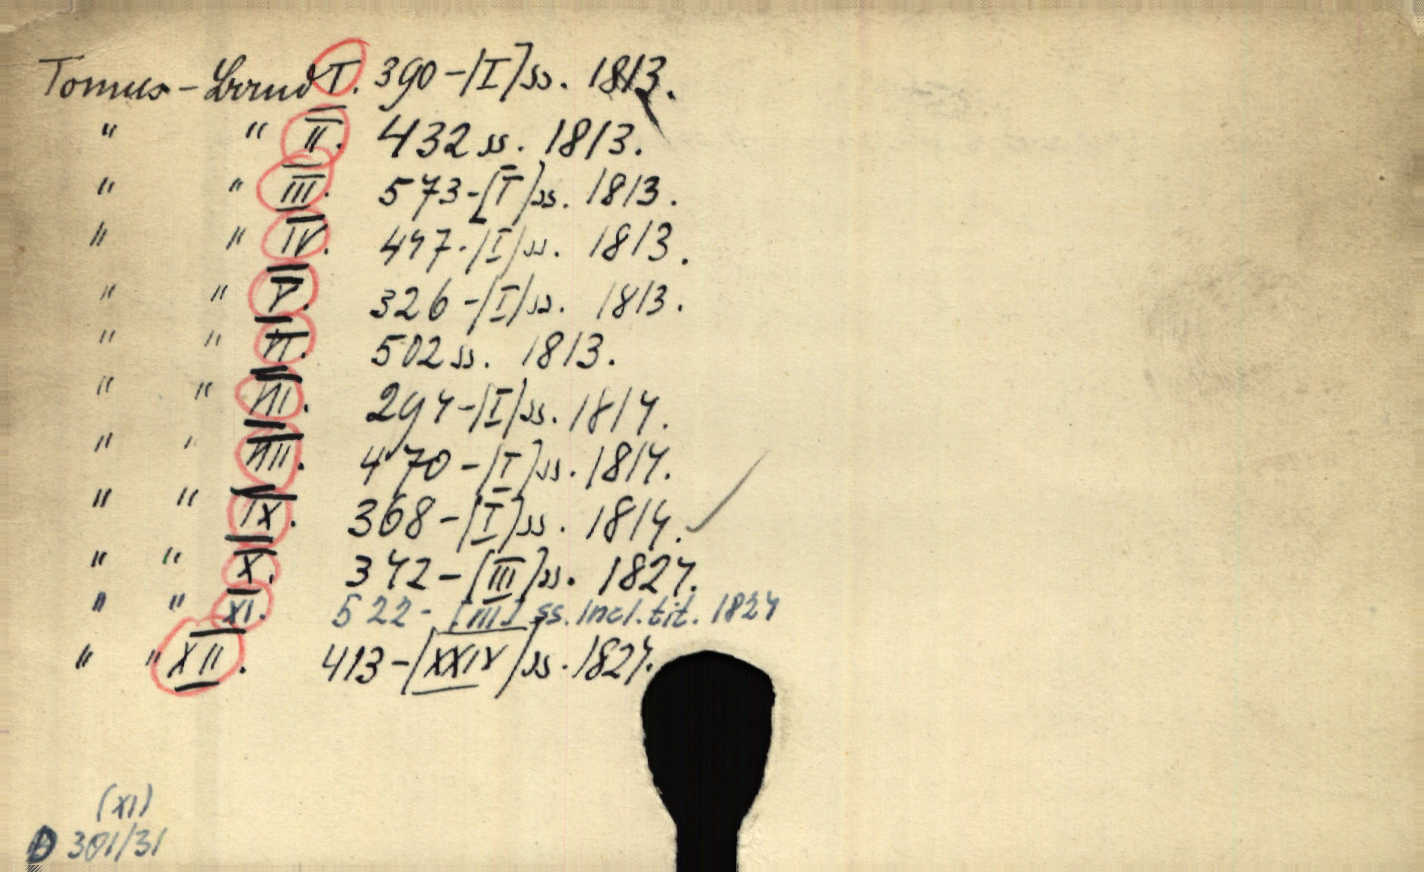 Tomus -Band I. 390-[I] ss. 1813.
" " II. 432 ss. 1813.
" " III. 573-[I] ss. 1813.
" " IV. 447-[I] ss. 1813.
" " V. 326-[I] ss. 1813.
" " VI. 502 ss. 1813.
" " VII. 294-[I] ss. 1814.
" " VIII. 470-[I] ss. 1814.
" " IX. 368-[I] ss. 1814.
" " X. 342-[III] ss. 1824.
" " XI. 522-[III] ss. incl. tit. 1824
" " XII. 413-[XXIV] ss. 1824.
(XI)
D 301/31